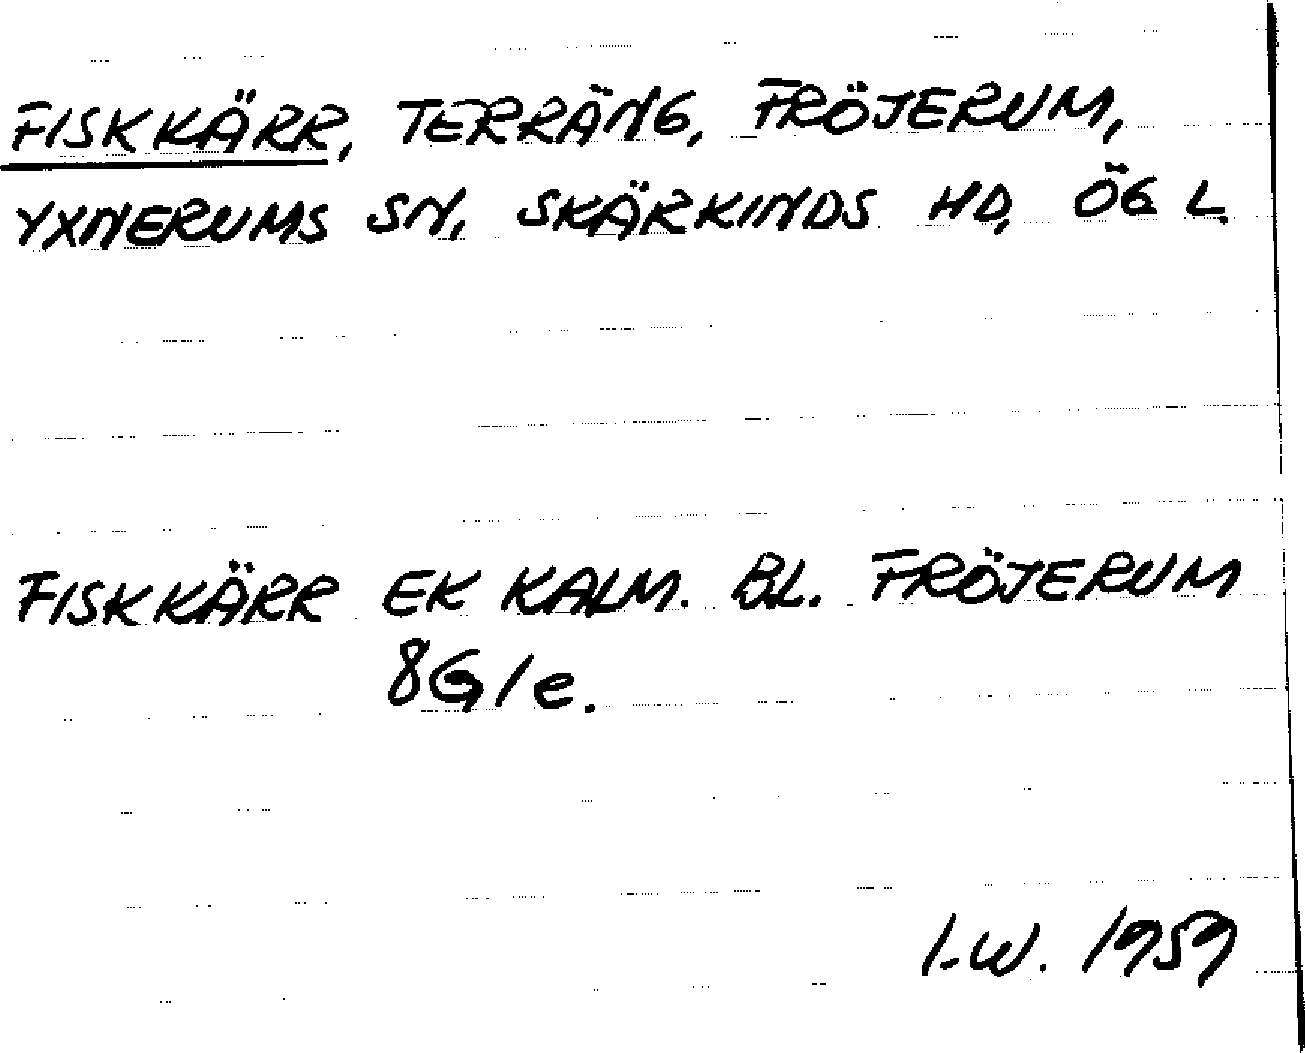 FISKKÄRR, TERRÄNG, FRÖJERUM,
YXNERUMS SN, SKÄRKINDS HD, ÖG L.
FISKKÄRR EK KALM. BL. FRÖJERUM
8G1e.
I.W. 1959